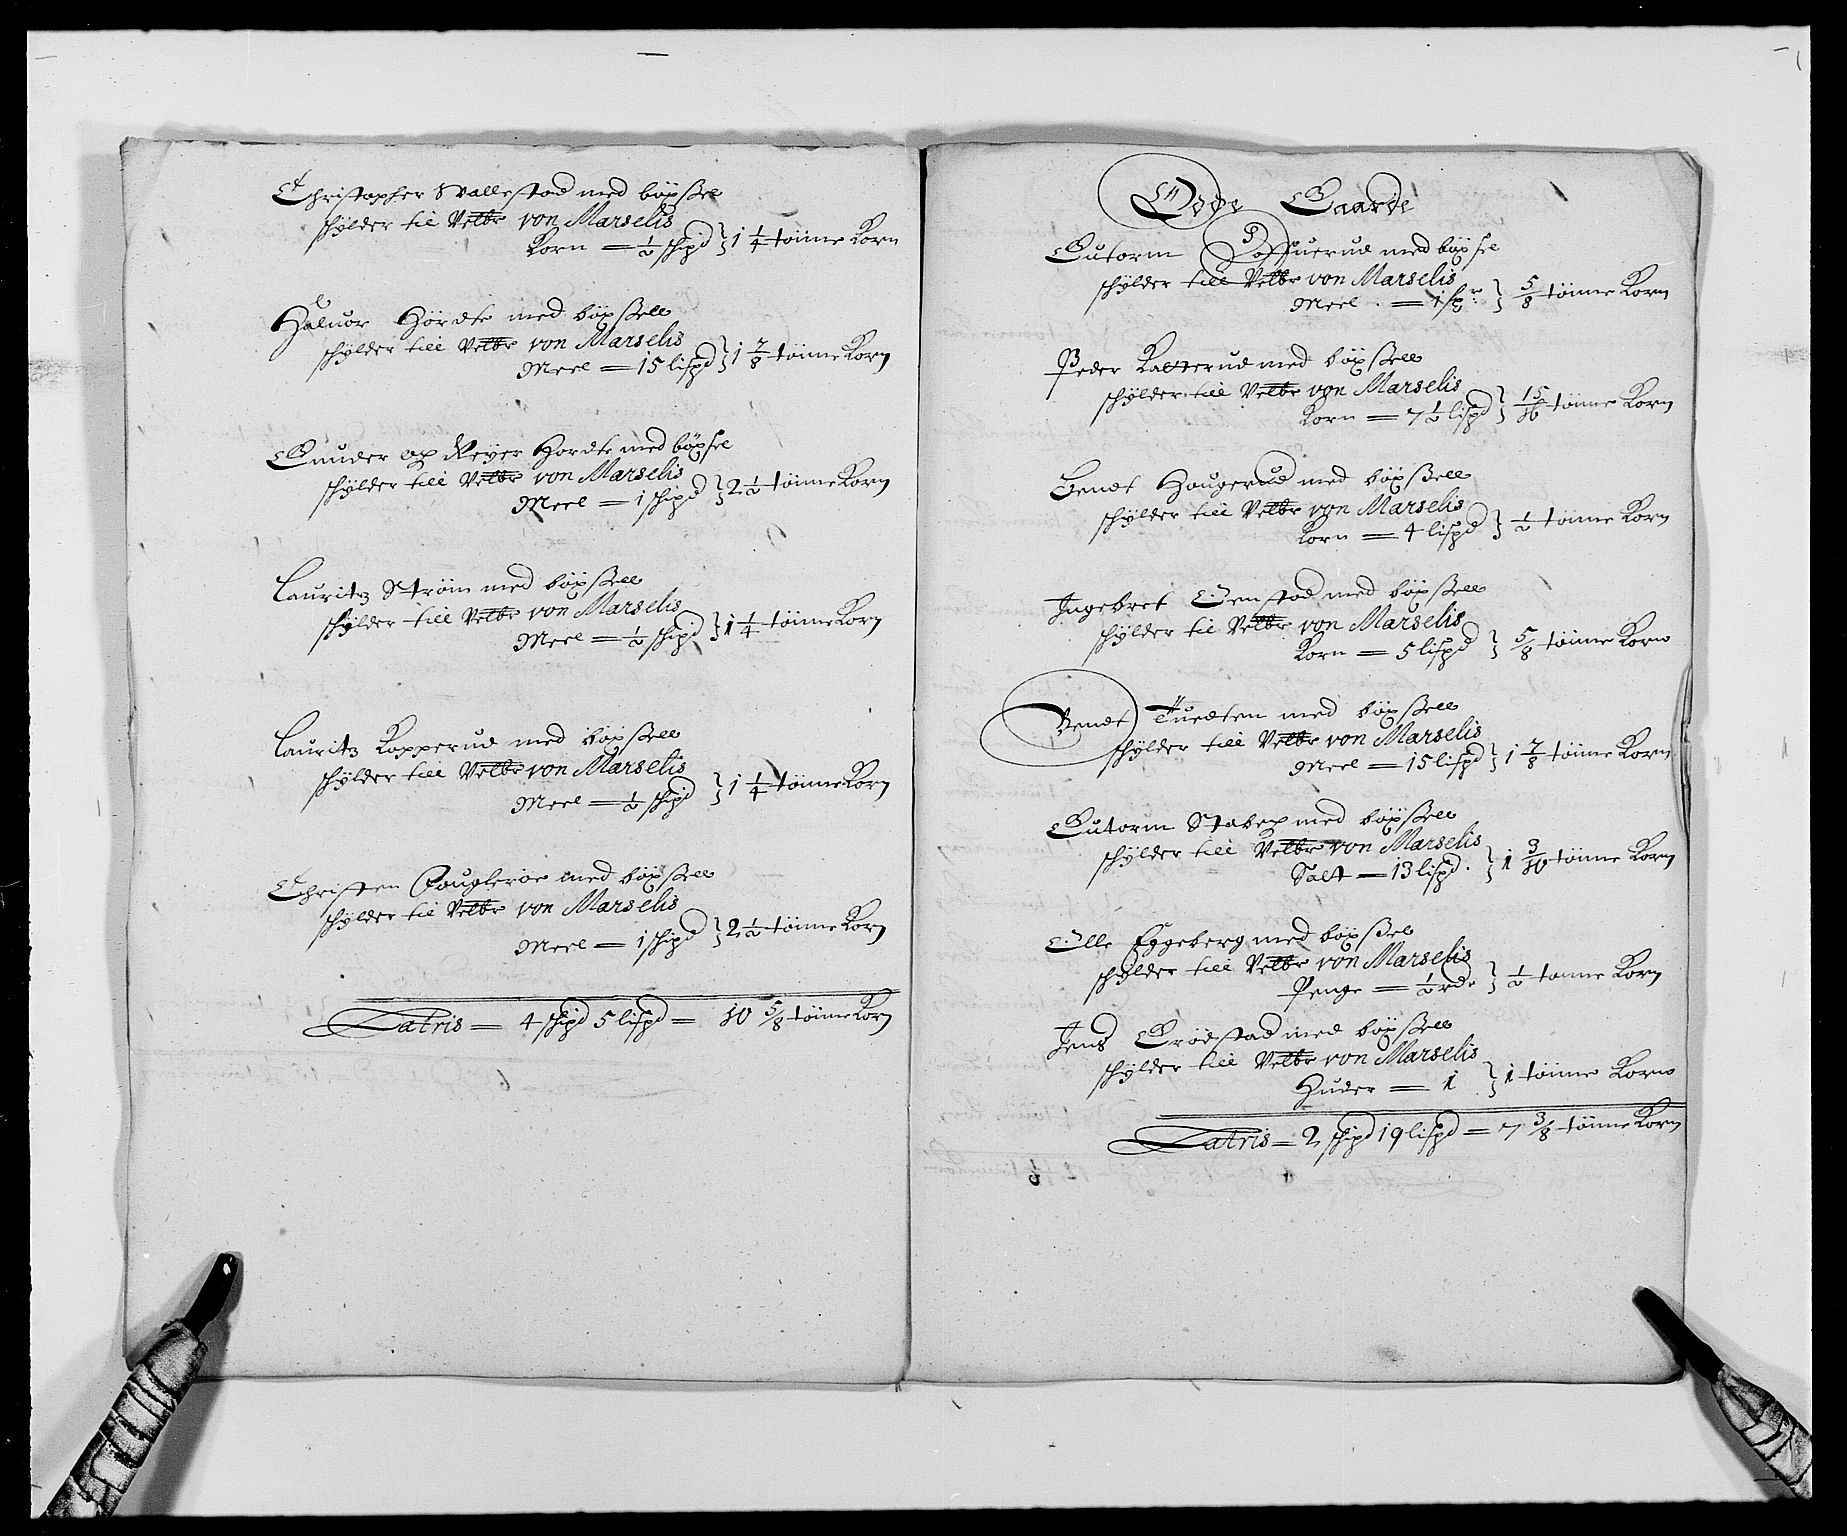 Christopher Vallestad med böxßel
schÿlder til Velbr von Marselis
Korn = ½ schipd } 1 ¼ tönne Korn
Haluor Hördte med böxßell
schÿlder till Velbr von Marselis
Meel = 15 lispd } 1 7/8 tönne Korn
Gunder og Reyer Hordte med böxsel
schÿlder till Velbr von Marselis
Meel = 1 schipd } 2 ½ tönne Korn
Lauritz Ström med böxßell
schÿlder till Velbr von Marselis
Meel = ½ schipd } 1 ¼ tönne Korn
Lauritz Kopperud med böxßell
schÿlder till Velbr von Marselis
Meel = ½ schipd } 1 ¼ tönne Korn
Christen med böxßell
schÿlder til Velbr von Marselis
Meel = 1 schipd } 2 ½ tönne Korn
Latris = 4 schipd 5 lispd = 10 5/8 tönne Korn
Öde Gaarde
Gutorm med böxsel
schÿlder till Velbr von Marselis
Meel = 1 } 5/8 tönne Korn
Peder med böxßell
schÿlder till Velbr von Marselis
Korn = 7 ½ lispd } 15/16 tönne Korn
Bendt Haugerud med böxßell
schÿlder till Velbr von Marselis
Korn = 4 lispd } ½ tönne Korn
Ingebret Oenstad med böxßell
schÿlder til Velbr von Marselis
Korn = 5 lispd } 5/8 tönne Korn
Bendt Tuedten med böxßell
schÿlder till Velbr von Marselis
Meel = 15 lispd } 1 7/8 tönne Korn
Gutorm Stabex med böxßell
schÿlder till Velbr von Marselis
Salt = 13 lispd. } 1 3/10 tönne Korn
Olle Eggeberg med böxßel
schÿlder till Velbr von Marselis
Penge = ½ rdr } ½ tonne Korn
Jens Grödstad med böxßell
schÿlder till Velbr von Marselis
Huder = 1 } 1 tönne Korn
Latris = 2 schipd 19 lispd = 7 3/8 tönne Korn